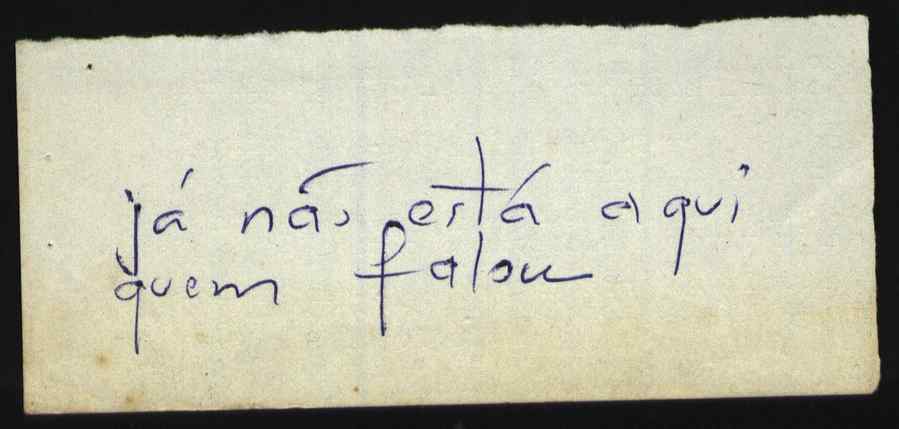 já não está aqui
quem falou